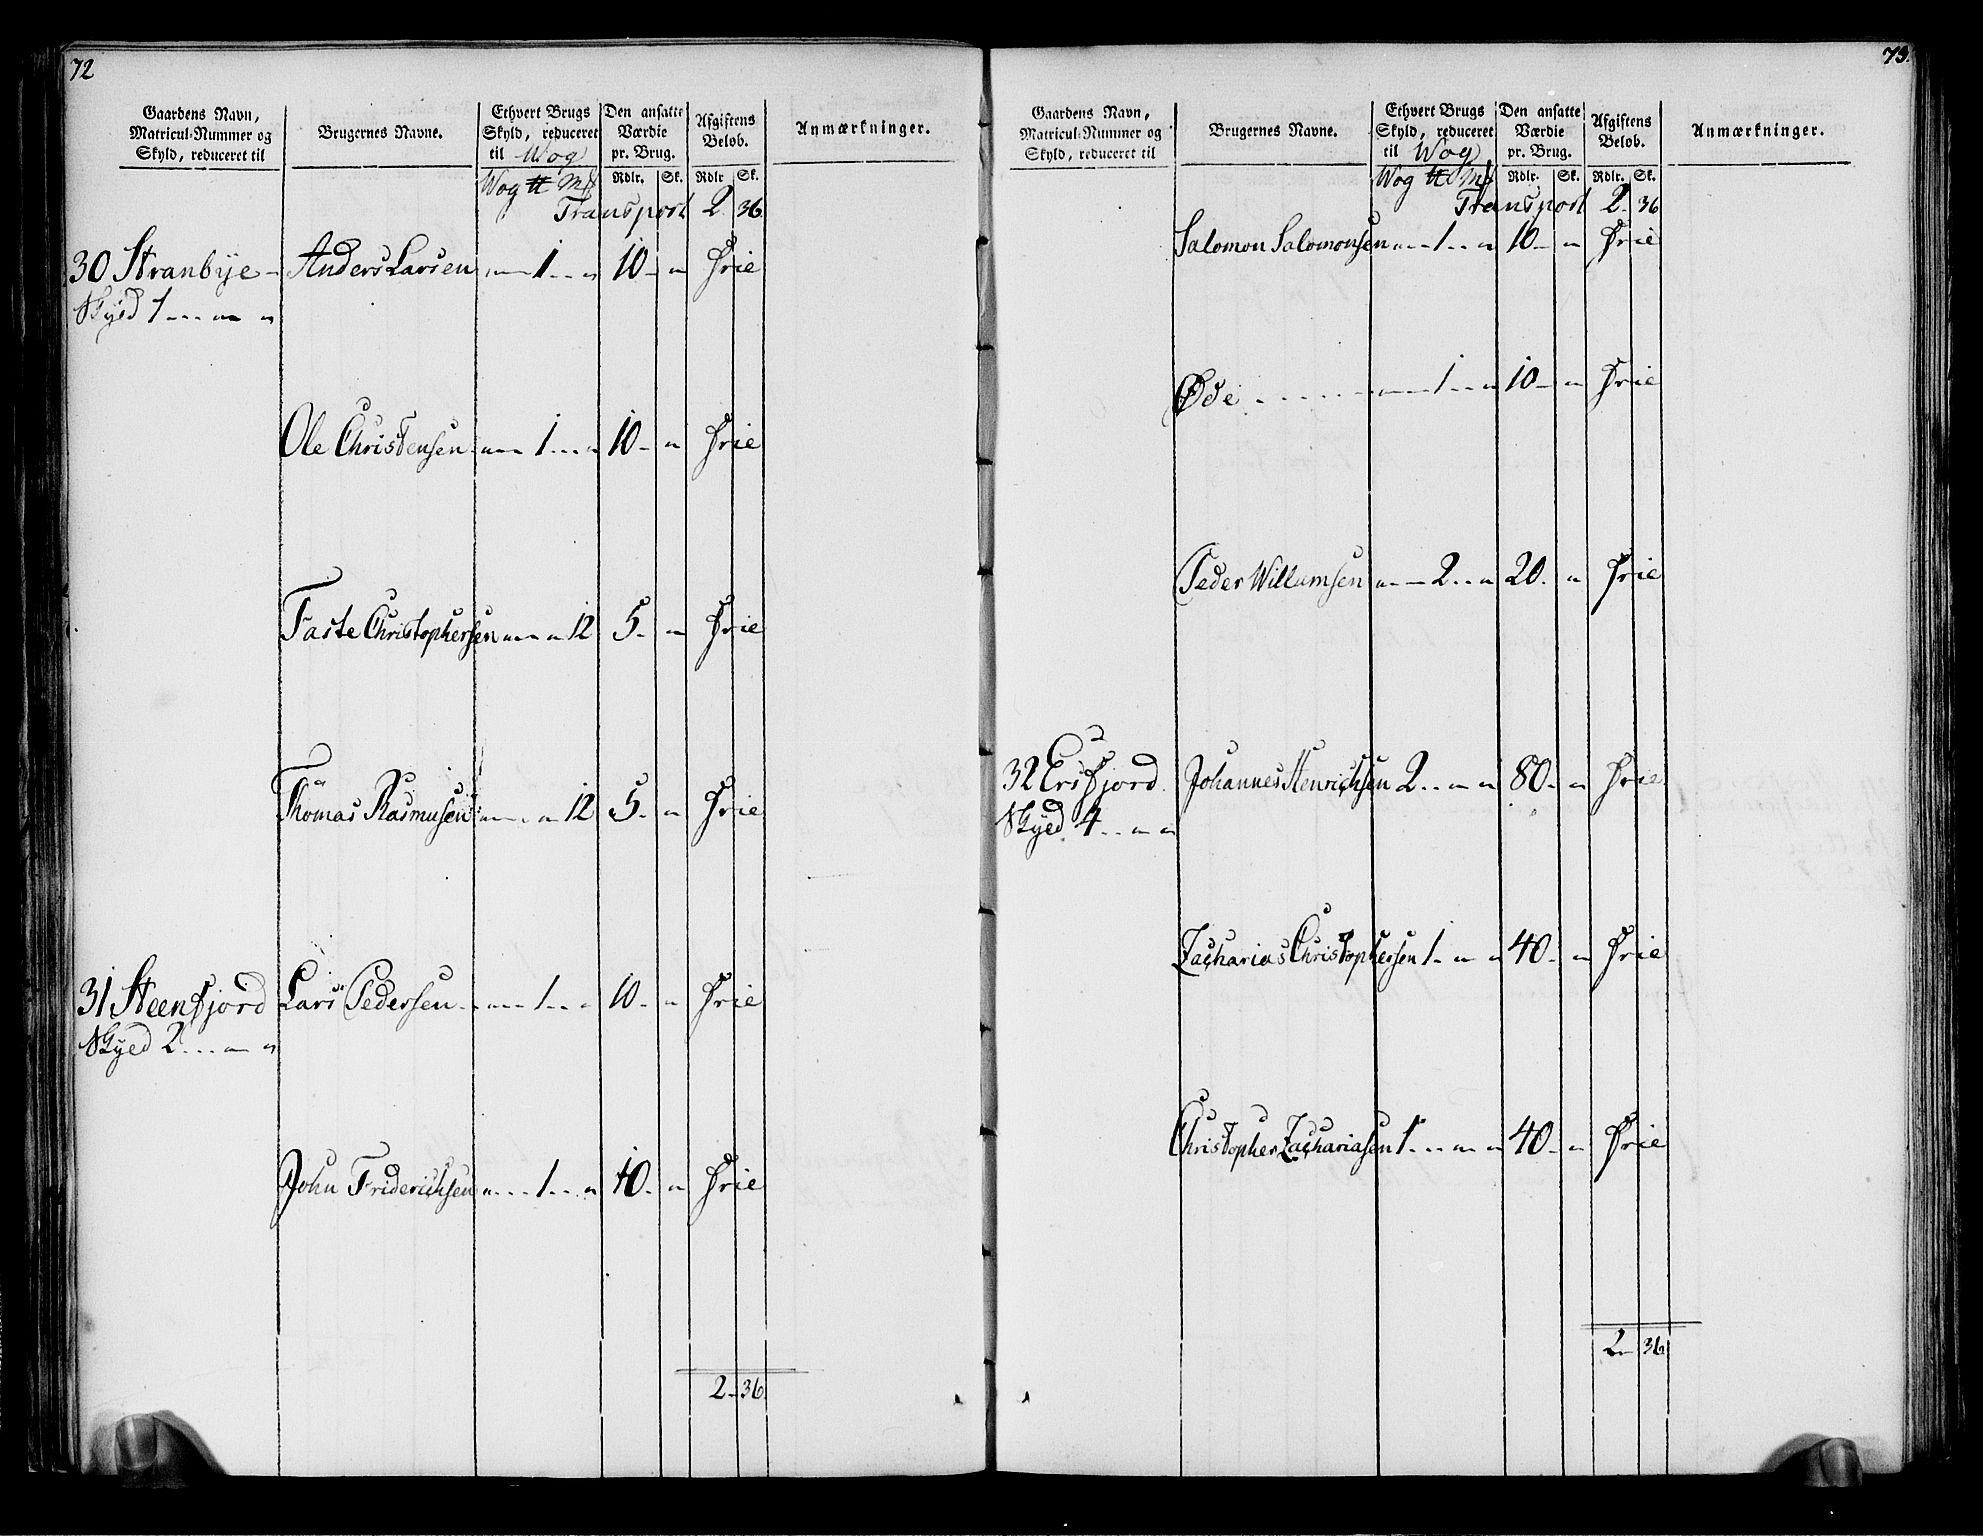 72
Gaardens Navn, Matricul-Nummer og Skyld, reduceret til
Brugernes Navne.
Ethvert Brugs Skyld, reduceret til Wog
Den ansatte Værdie pr. Brug.
Afgiftens Beløb.
Anmærkninger.
Wog ℔ Mk Rdlr. Sk. Rdlr Sk.
Transport 2 36
30 Stranbÿe - Anders Larsen „ — 1 .. „ 10 - „ Frie
Skÿld 1 ... „ „
Ole Christensen „ — 1 ... „ 10 - „ Frie
Faste Christophersen „ — „ 12 5 - „ Frie
Thomas Rasmusen „ — „ 12 5 - „ Frie
31 Steenfjord Lars Pedersen „ — 1 .. „ 10 - „ Frie
Skÿld 2 ... „ „
John Friderichsen „ ... 1 ... „ 10 - „ Frie
2 - 36
73.
Gaardens Navn, Matricul-Nummer og Skyld, reduceret til
Brugernes Navne.
Ethvert Brugs Skyld, reduceret til Wog
Den ansatte Værdie pr. Brug.
Afgiftens Beløb.
Anmærkninger.
Wog ℔ Mk Rdlr. Sk. Rdlr. Sk.
Transport 2 - 36
Salomon Salomonsen „ — 1 .. „ 10 - „ Frie
Øde . . . . . . „ — 1 .. „ 10 - „ Frie
Peder Willumsen „ — 2 .. „ 20 . „ Frie
32 Ersfjord. Johannes Henrichsen 2 .. „ „ 80 - „ Frie
Skÿld 4 .. „ „
Zacharias Christophersen 1 - „ „ 40 - „ Frie
Christopher Zachariasen 1 ... „ „ 40 - „ Frie
2 - 36